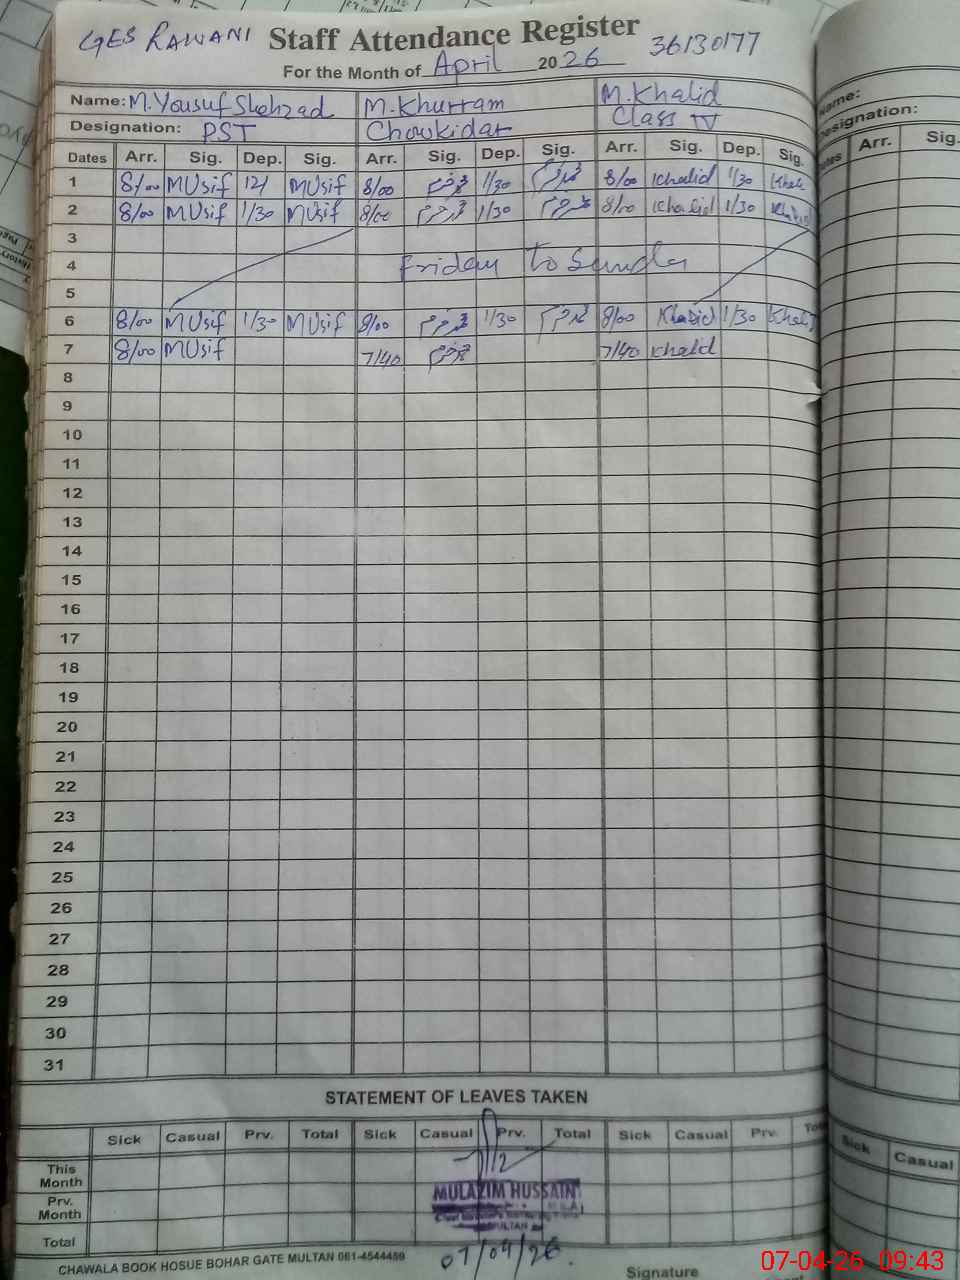 GES RAWANI Staff Attendance Register 36130177
For the Month of April 2026
Name: M. Yousuf Shehzad M. Khurram M. Khalid
Designation: PST Chowkidar Class IV
Dates Arr. Sig. Dep. Sig. Arr. Sig. Dep. Sig. Arr. Sig. Dep. Sig.
1 8/00 MUsif 12/ MUsif 8/00 محمد خرم 1/30 محمد خرم 8/00 Khalid 1/30 Khali
2 8/00 MUsif 1/30 MUsif 8/00 محمد خرم 1/30 محمد خرم 8/00 Khalid 1/30 Khalid
3
4 Friday to Sunda
5
6 8/00 MUsif 1/30 MUsif 8/00 محمد خرم 1/30 محمد خرم 8/00 Khalid 1/30 Khalid
7 8/00 MUsif 7/40 محمد خرم 7/40 Khalid
8
9
10
11
12
13
14
15
16
17
18
19
20
21
22
23
24
25
26
27
28
29
30
31
STATEMENT OF LEAVES TAKEN
Sick Casual Prv. Total Sick Casual Prv. Total Sick Casual Prv. Tot
This Month
Prv. Month
Total
MULAZIM HUSSAIN
MULTAN
07/04/26
CHAWALA BOOK HOSUE BOHAR GATE MULTAN 061-4544459
Signature
Name:
Designation:
Arr. Sig.
Sick Casual
07-04-26 09:43